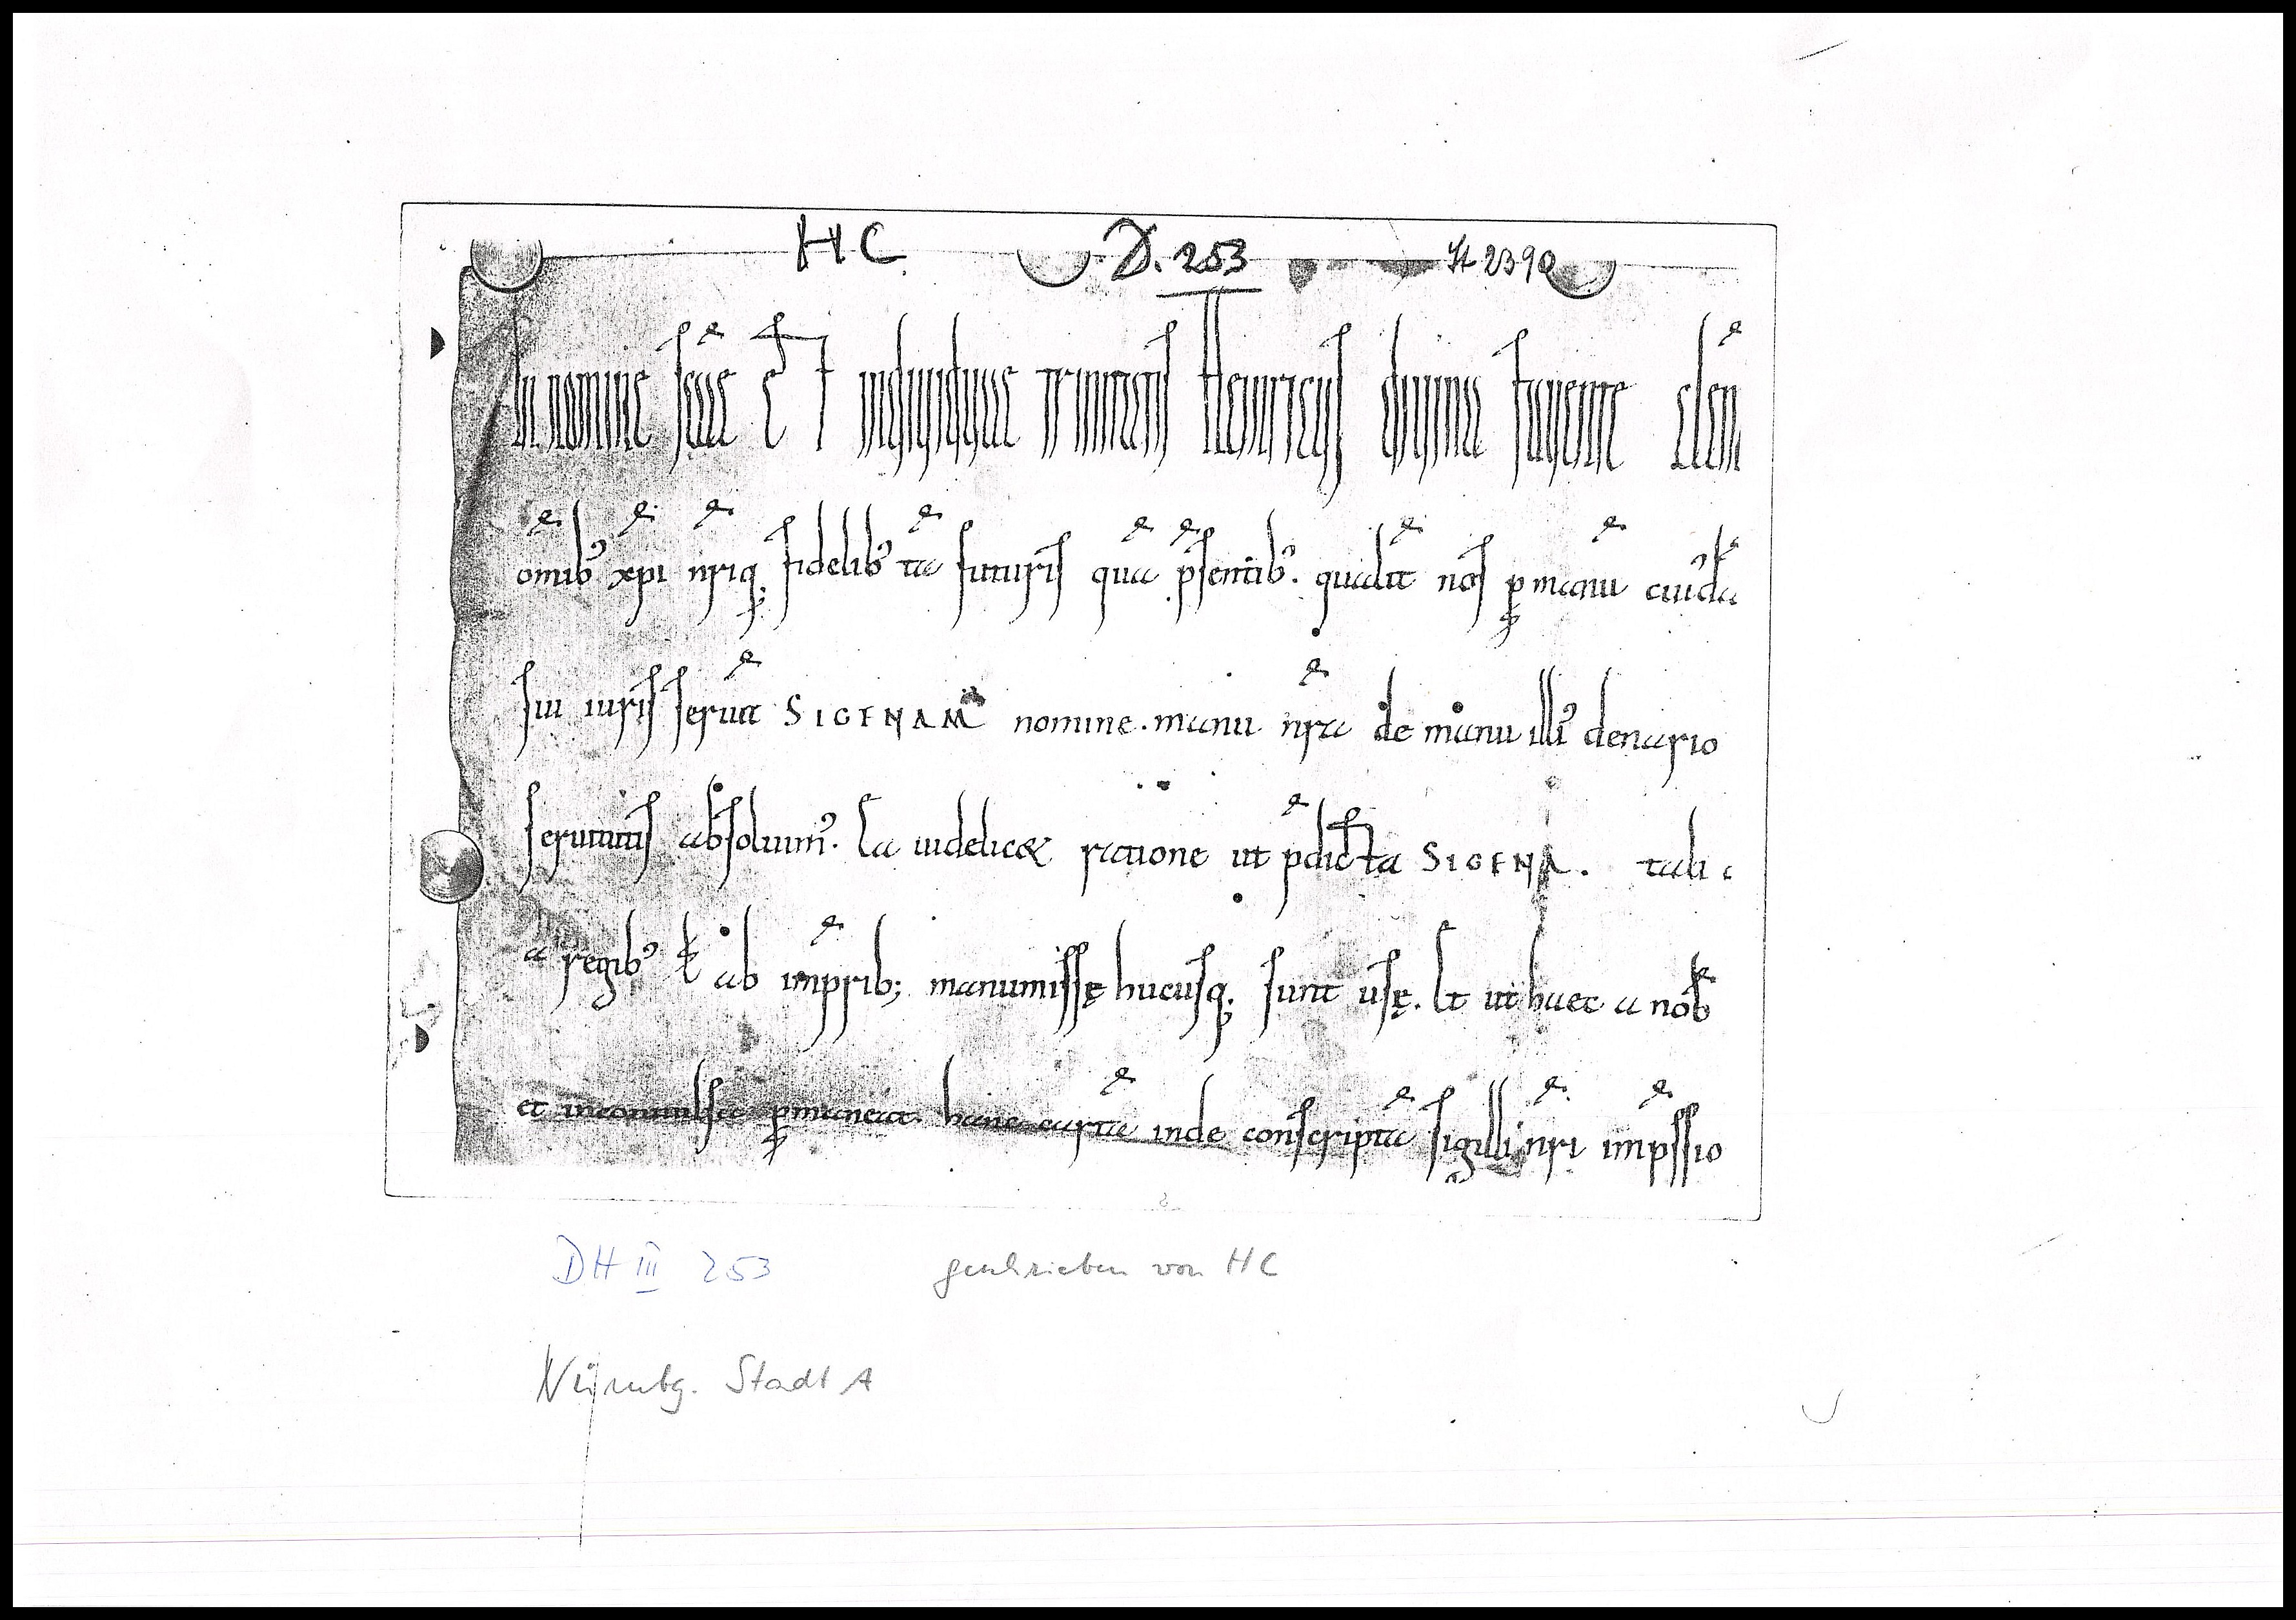 HC D. 253 St 2390
In nomine sc̃ae et indiuiduae trinitatis Heinricus diuina fauente clem̃
omĩb᾽ xp̃i nr̃iq; fidelib᾽ tã futuris quã p̃sentib᾽. qualit̃ nos p manu cuiúsdã
sui iuris seruã SIGENAM nomine. manu nr̃a de manu illi᾽ denario
seruitutis absoluim᾽. Ea uidelicet ratione ut p̃dicta SIGENA. tali
a regib᾽ uł ab imp̃rib; manumissę hucusq; sunt usę. Et ut haec a nob̃
et inconuulsa pmaneat. hanc cartã inde conscriptã sigilli nr̃i imp̃ssio
DH III 253 geschrieben von HC
Nürnbg. Stadt A